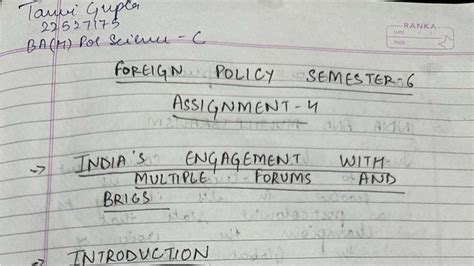 Tanvi Gupta
22527175
BA(H) Pol Science - C
RANKA
DATE
PAGE
FOREIGN POLICY SEMESTER-6
ASSIGNMENT-4
→ INDIA'S ENGAGEMENT WITH
MULTIPLE FORUMS AND
BRIGS
→ INTRODUCTION